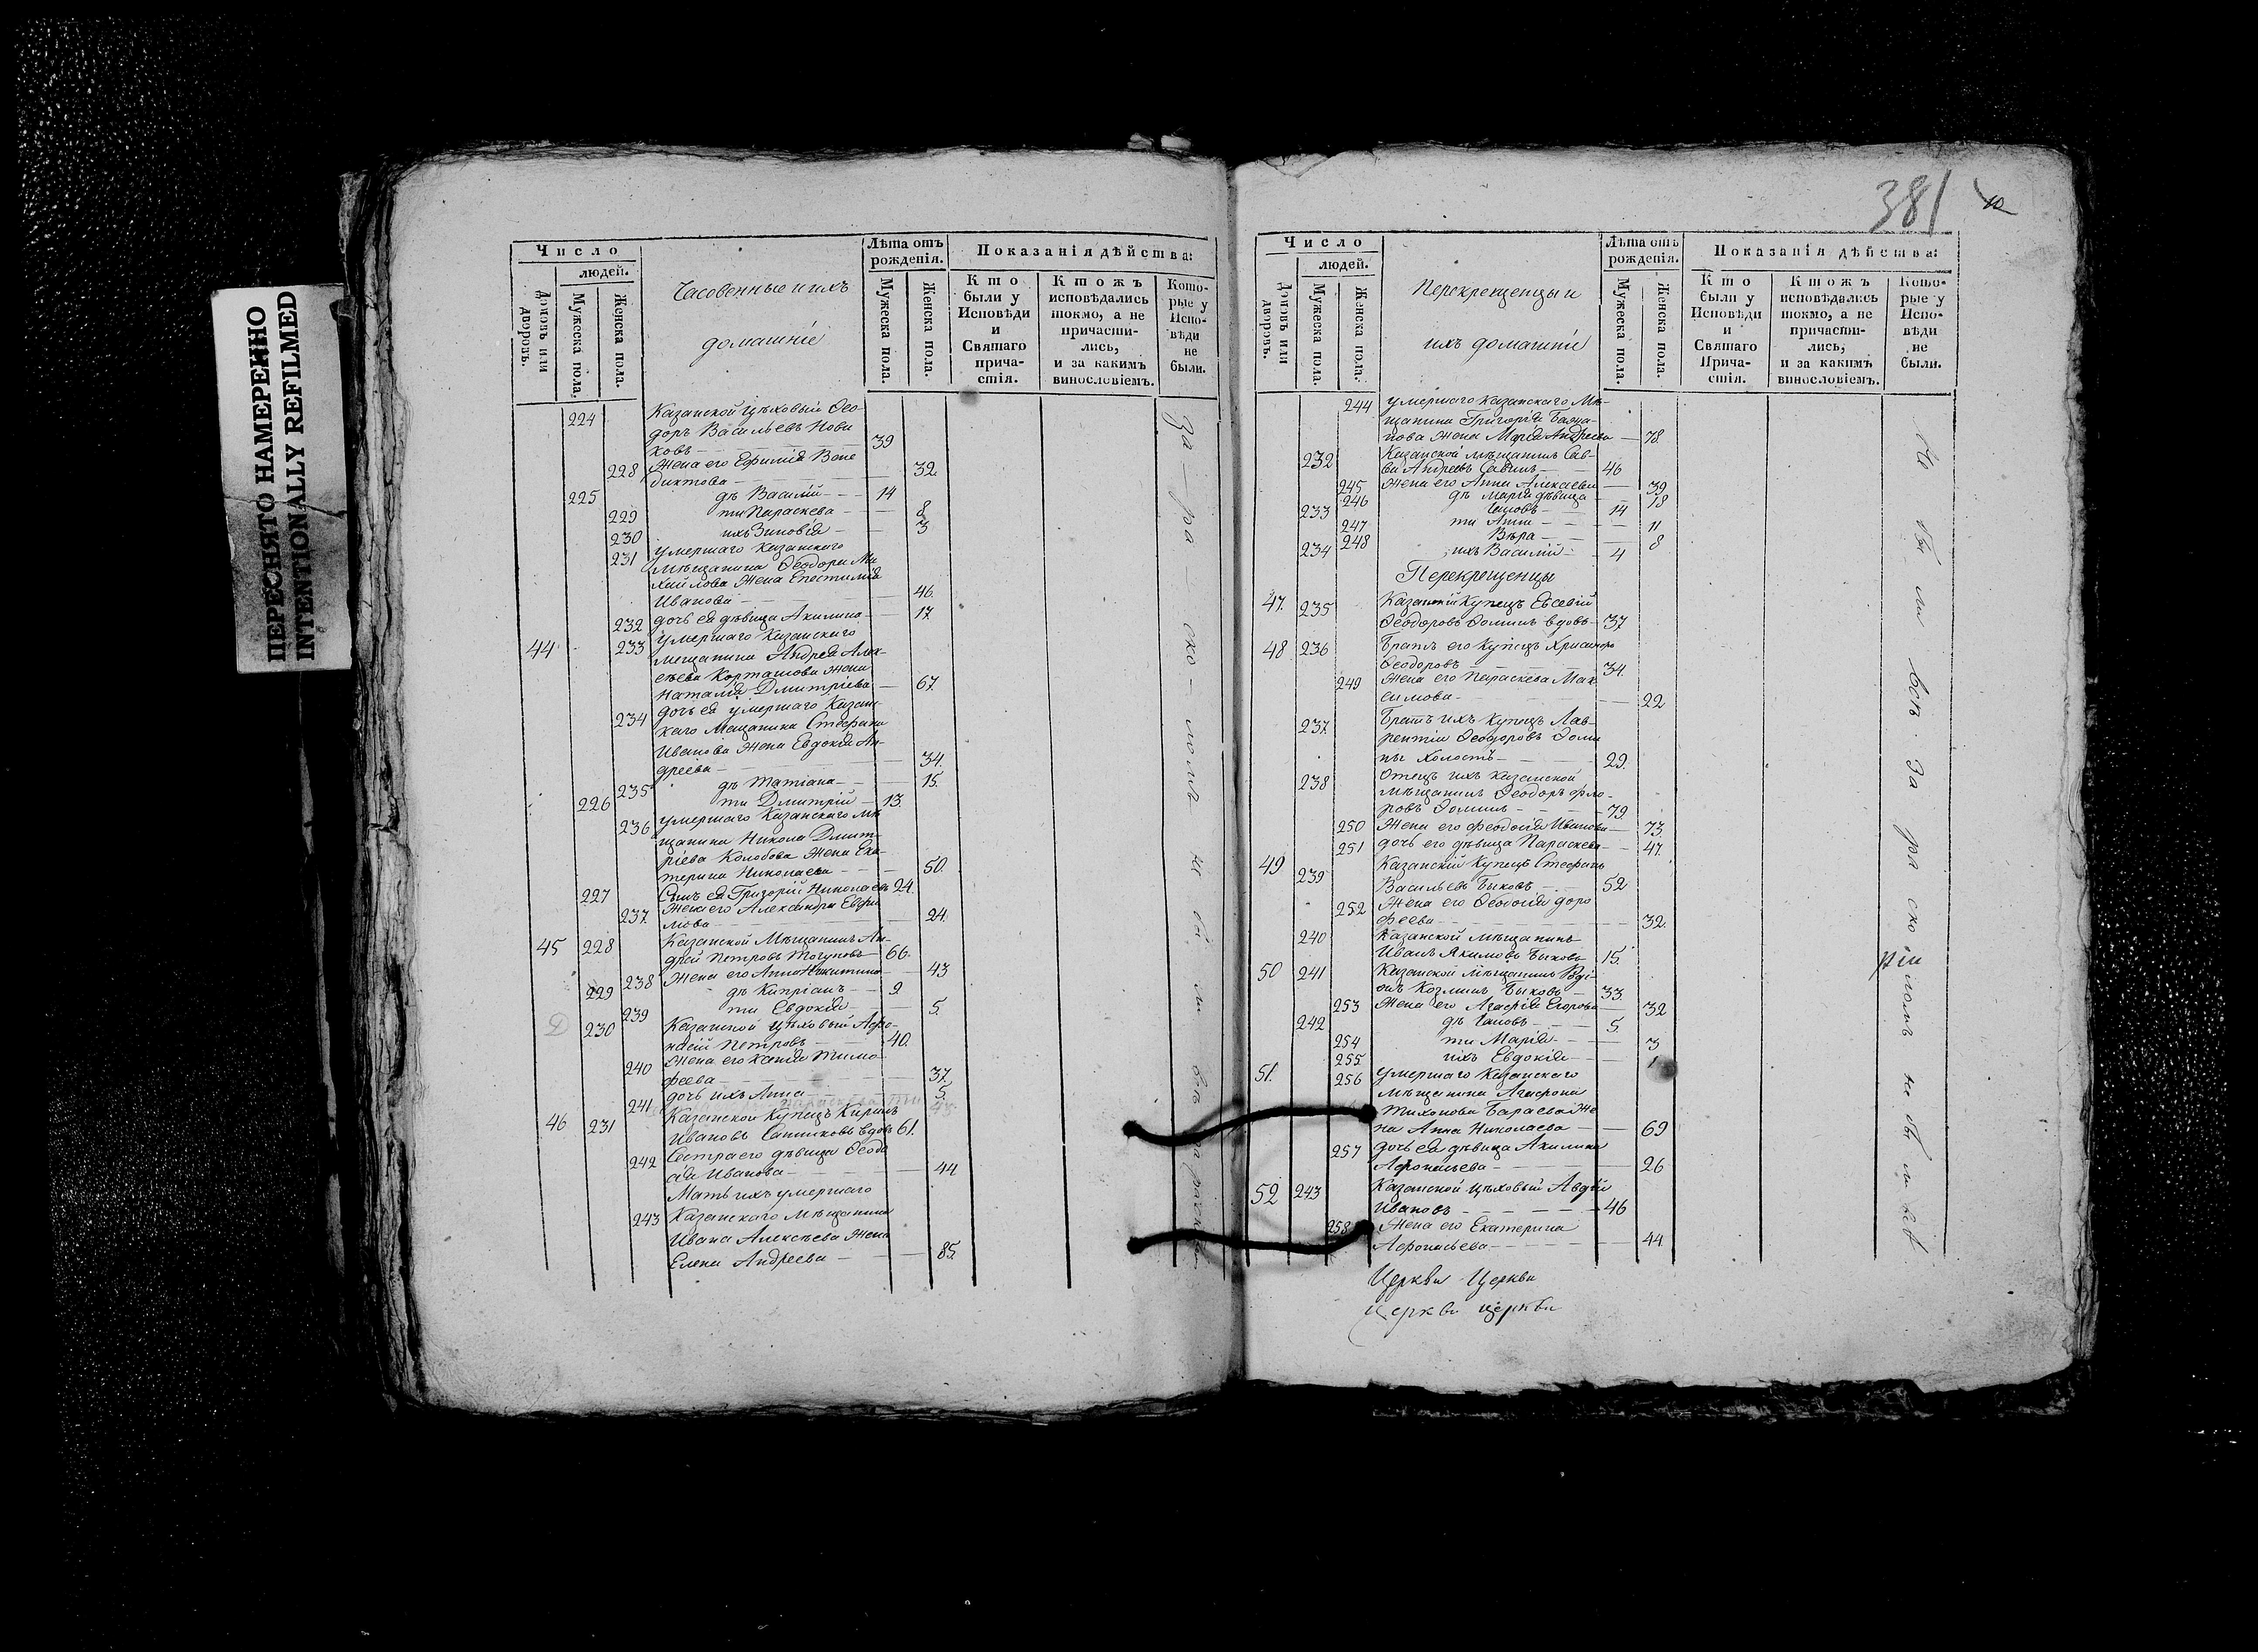 ПЕРЕСНЯТО НАМЕРЕННО
INTENTIONALLY REFILMED
Число
людей.
Домовъ или дворовъ.
Мужеска пола.
Женска пола.
Часовенные и ихъ
домашніе
Лѣта отъ рожденія.
Мужеска пола.
Женска пола.
Показанія дѣйства:
Кто были у Исповѣди и Святаго причастія.
Ктожъ исповѣдались токмо, а не причастились, и за какимъ винословіемъ.
Которые у Исповѣди не были.
224 Казанской цѣховый Ѳео-
доръ Васильевъ Нови
ковъ 39
228 Жена его Ефимія Вене
диктова 32
225 дѣ Василій 14
229 ти Параскева 8
230 ихъ Зиновія 3
231 умершаго Казанскаго
мѣщанина Ѳеодора Ми
хайлова жена
Иванова 46.
232 дочь ея дѣвица Акилина 17.
44 233 умершаго Казанскаго
мещанина Андрея Алек-
сѣева жена
Наталія Дмитріева 67.
234 дочь ея умершаго Казан-
скаго Мещанина Стефана
Иванова жена Евдокія Ан-
дреева 34.
235 дѣ Татіана 15.
226 ти Дмитрій 13.
236 умершаго Казанскаго мѣ
щанина Никола Дмит-
ріева Колобова жена Ека-
терина Николаева 50.
227 Сынъ ея Григорій Николаевъ 24.
237. Жена его Александра Ефи
мова 24.
45 228 Казанской Мѣщанинъ Ан-
дрей Петровъ 66.
238 Жена его Анна Никитина 43
229 дѣ Кипріанъ 9
239 ти Евдокія 5.
230 Казанской цѣховый Афо-
насій Петровъ 40.
240 Жена его Тимо
феева 37.
241 дочь ихъ Анна 5.
46 231 Казанской Купецъ Кирилъ
Ивановъ вдовъ 61.
242 Сестра его дѣвица Ѳеодо
сія Иванова 44
Мать ихъ умершаго
243 Казанскаго мѣщанина
Ивана Алексѣева жена
Елена Андреева 85.
за-ра-ско-ломъ не бы ли
381
10
Число
людей.
Домовъ или дворовъ.
Мужеска пола.
Женска пола.
Перекрещенцы и
ихъ домашніи
Лѣта отъ рожденія.
Мужеска пола.
Женска пола.
Показанія дѣйства:
Кто были у Исповѣди и Святаго Причастія.
Ктожъ исповѣдались токмо, а не причастились, и за какимъ винословіемъ.
Которые у Исповѣди не были.
244 умершаго Казанскаго Мѣ-
щанина Григорія
жена Марія Андреева 78.
232 Казанской мѣщанинъ Сав-
ва Андреевъ Савинъ 46
245 Жена его Анна Алексѣева 39
246 дѣ Марія дѣвица 18
233 Іаковъ 14
247 ти Анна 11
248 Вѣра 8
234 ихъ Василій 4
Перекрещенцы
47. 235 Казанскій Купецъ Евсевій
Ѳеодоровъ Ѳоминъ вдовъ 37
48 236 Братъ его Купецъ
Ѳеодоровъ 34.
249 Жена его Параскева Мак
симова 22
237. Братъ ихъ Купецъ Лав-
рентіи Ѳеодоровъ Ѳоми
нъ Холостъ 29.
238 Отецъ ихъ Казанской
мѣщанинъ Ѳеодоръ Фло-
ровъ Ѳоминъ 79.
250 Жена его Феодосія Иванова 73.
251 дочь его дѣвица Параскева 47.
49 239 Казанскій Купецъ Стефанъ
Васильевъ Быковъ 52
252 Жена его Ѳеодосія Доро
феева 32.
240 Казанской мѣщанинъ
Иванъ Якимовъ Быковъ 15.
50 241 Казанской мѣщанинъ
Козминъ Быковъ 33.
253 Жена его Агафія Егорова 32
242 дѣ Іаковъ 5.
254 ти Марія 3
255 ихъ Евдокія 1
51. 256 умершаго Казанскаго
мѣщанина Агафона
Тихонова Бараева Же
на Анна Николаева 69
257 дочь ея дѣвица Акилина
Афонасьева 26
52 243 Казанской цѣховый Авдѣй
Ивановъ 46
258 Жена его Екатерина
Афонасьева 44.
Церкви Церкви
церкви церкви